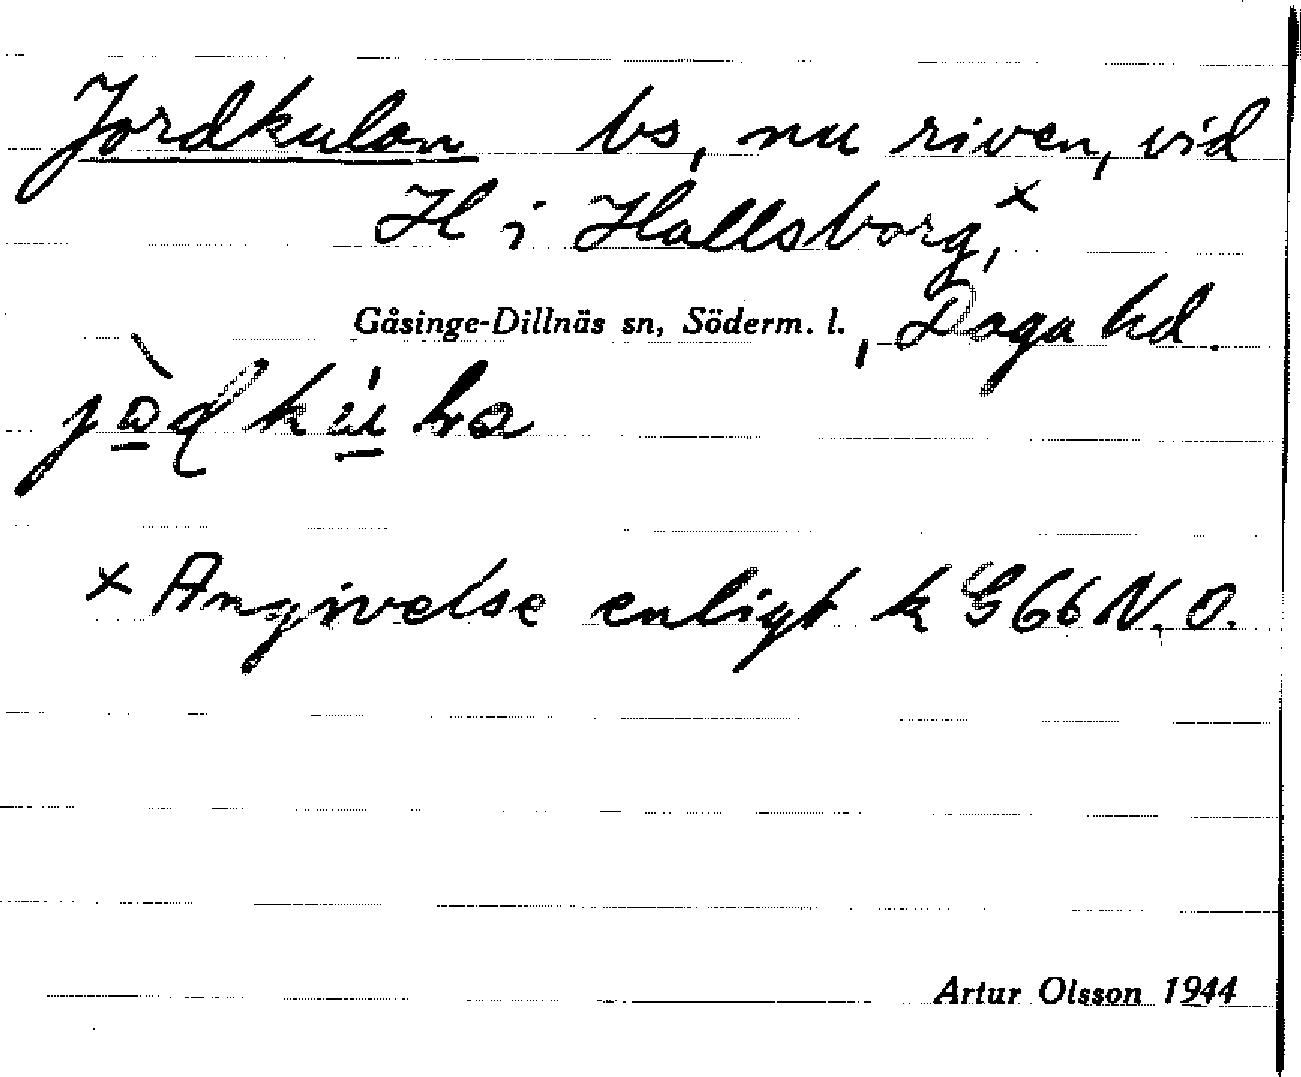 Jordkulan bs, nu riven, vid
H i Hallsborg,x
Gåsinge-Dillnäs sn, Söderm. l., Daga hd.
x Angivelse enligt k G66 N.O.
Artur Olsson 1944